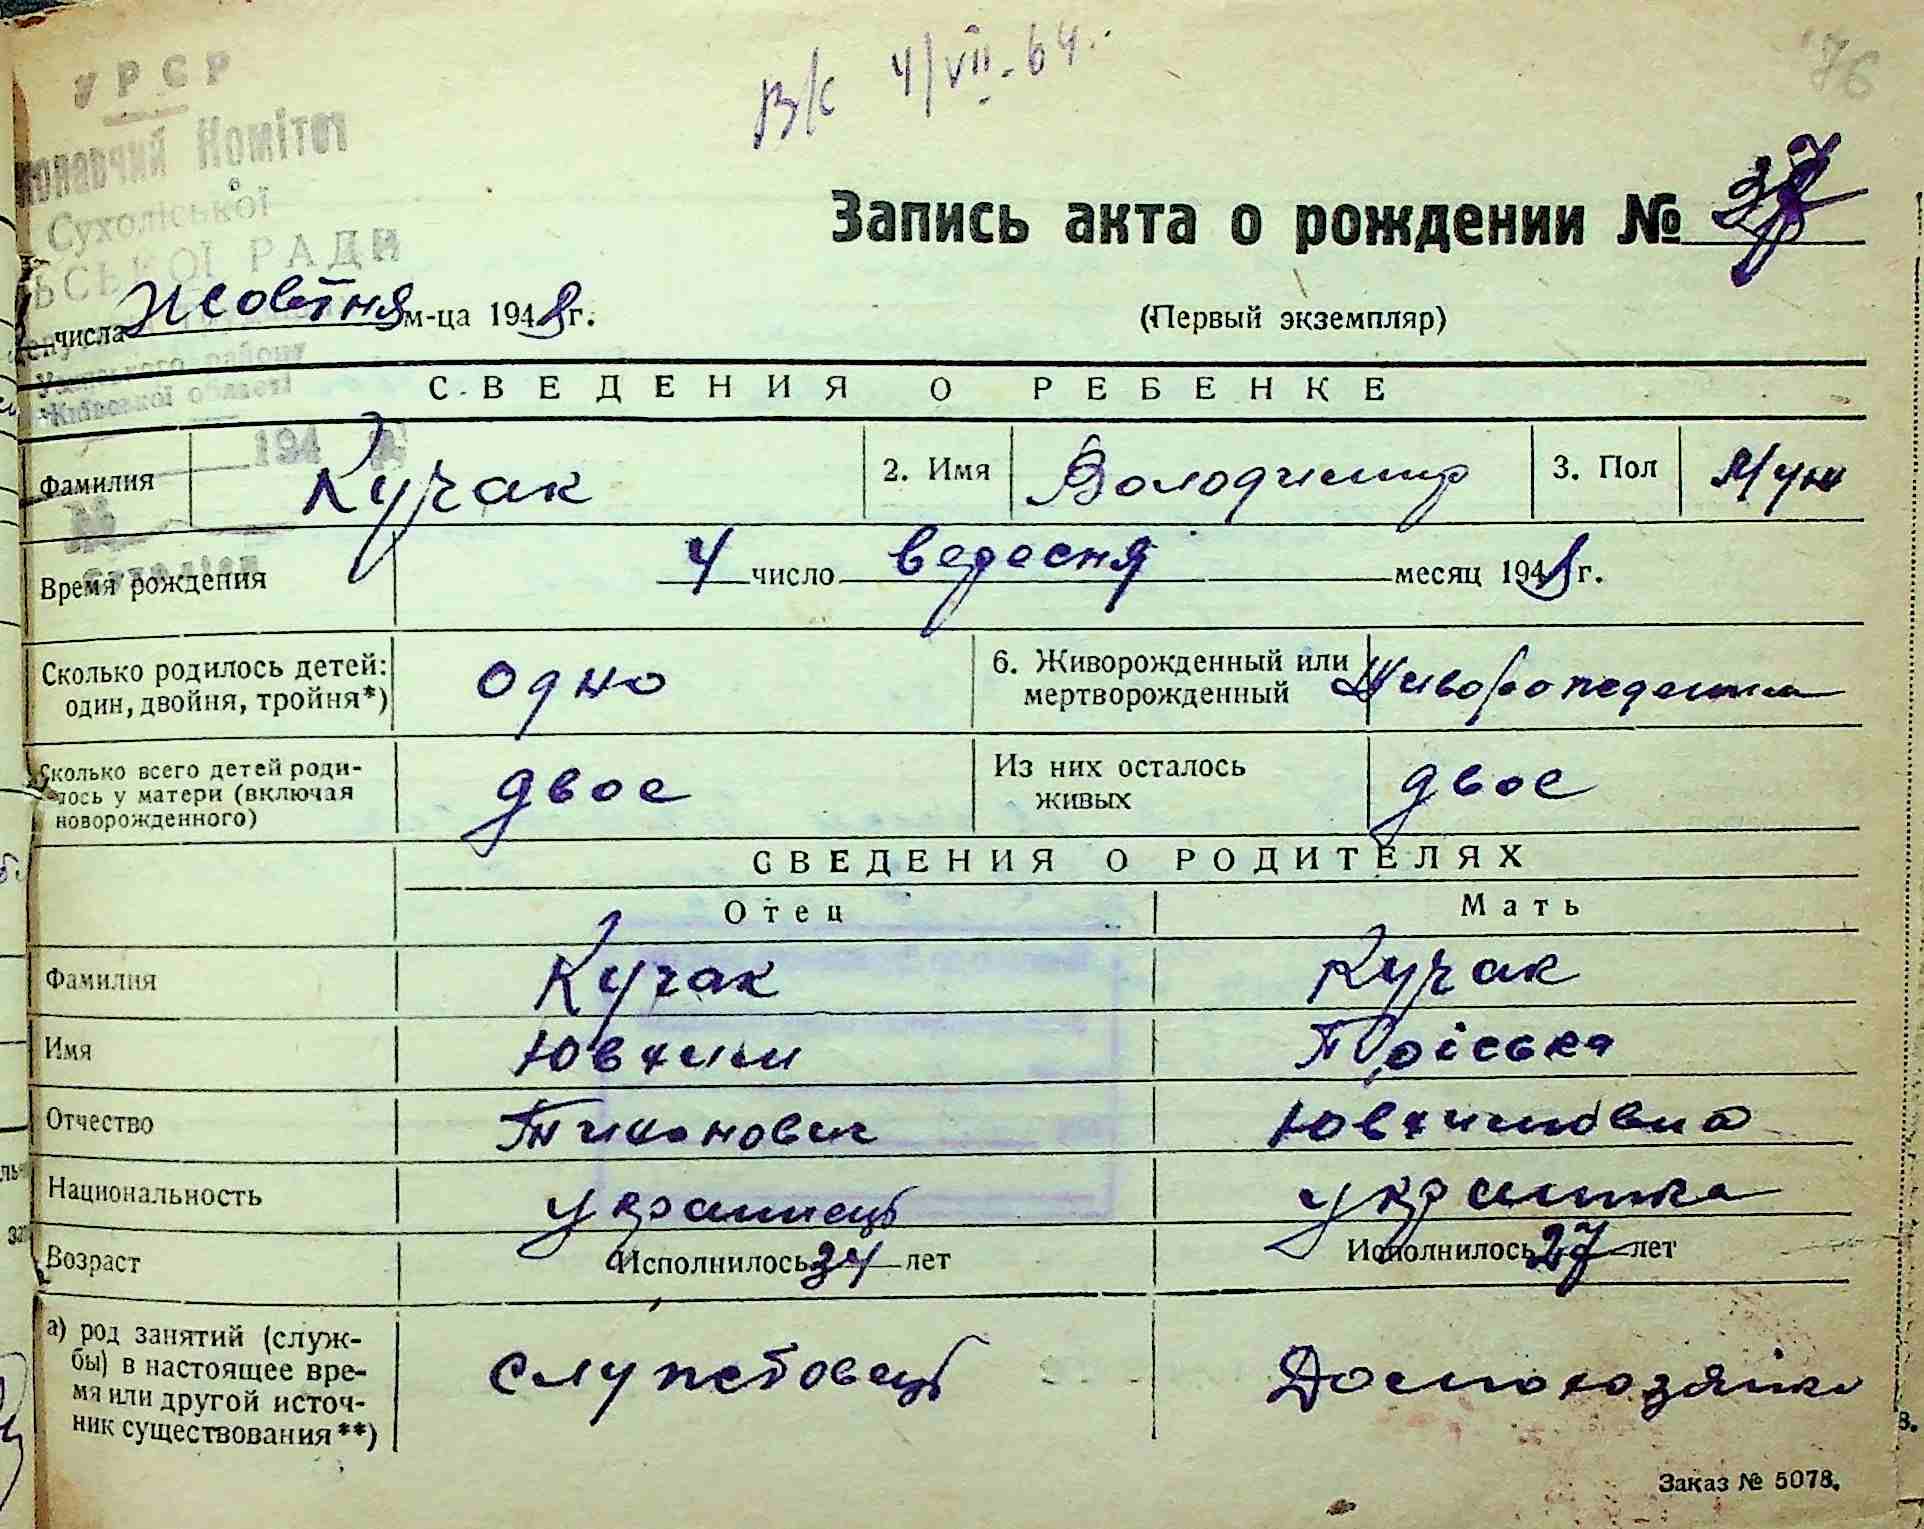 УРСР
В/к 4/VII-64.
76
онавчий Комітет
Сухоліської
ЬСЬКОЇ РАДИ
Запись акта о рождении № 37
числа Жовтня м-ца 1948 г.
(Первый экземпляр)
району
Київської області
194
СВЕДЕНИЯ О РЕБЕНКЕ
Фамилия Кучак 2. Имя Володимир 3. Пол Муж
№
Время рождения 4 число вересня месяц 1948 г.
Сколько родилось детей: один, двойня, тройня*) Одно 6. Живорожденный или мертворожденный
Сколько всего детей роди-
лось у матери (включая
новорожденного) двое Из них осталось живых двое
СВЕДЕНИЯ О РОДИТЕЛЯХ
Отец Мать
Фамилия Кучак Кучак
Имя Ювхим Пріська
Отчество Тихонович Ювхимовна
Национальность українець українка
Возраст Исполнилось 34 лет Исполнилось 27 лет
а) род занятий (служ-
бы) в настоящее вре-
мя или другой источ-
ник существования**) службовець Домохозяйка
Заказ № 5078.